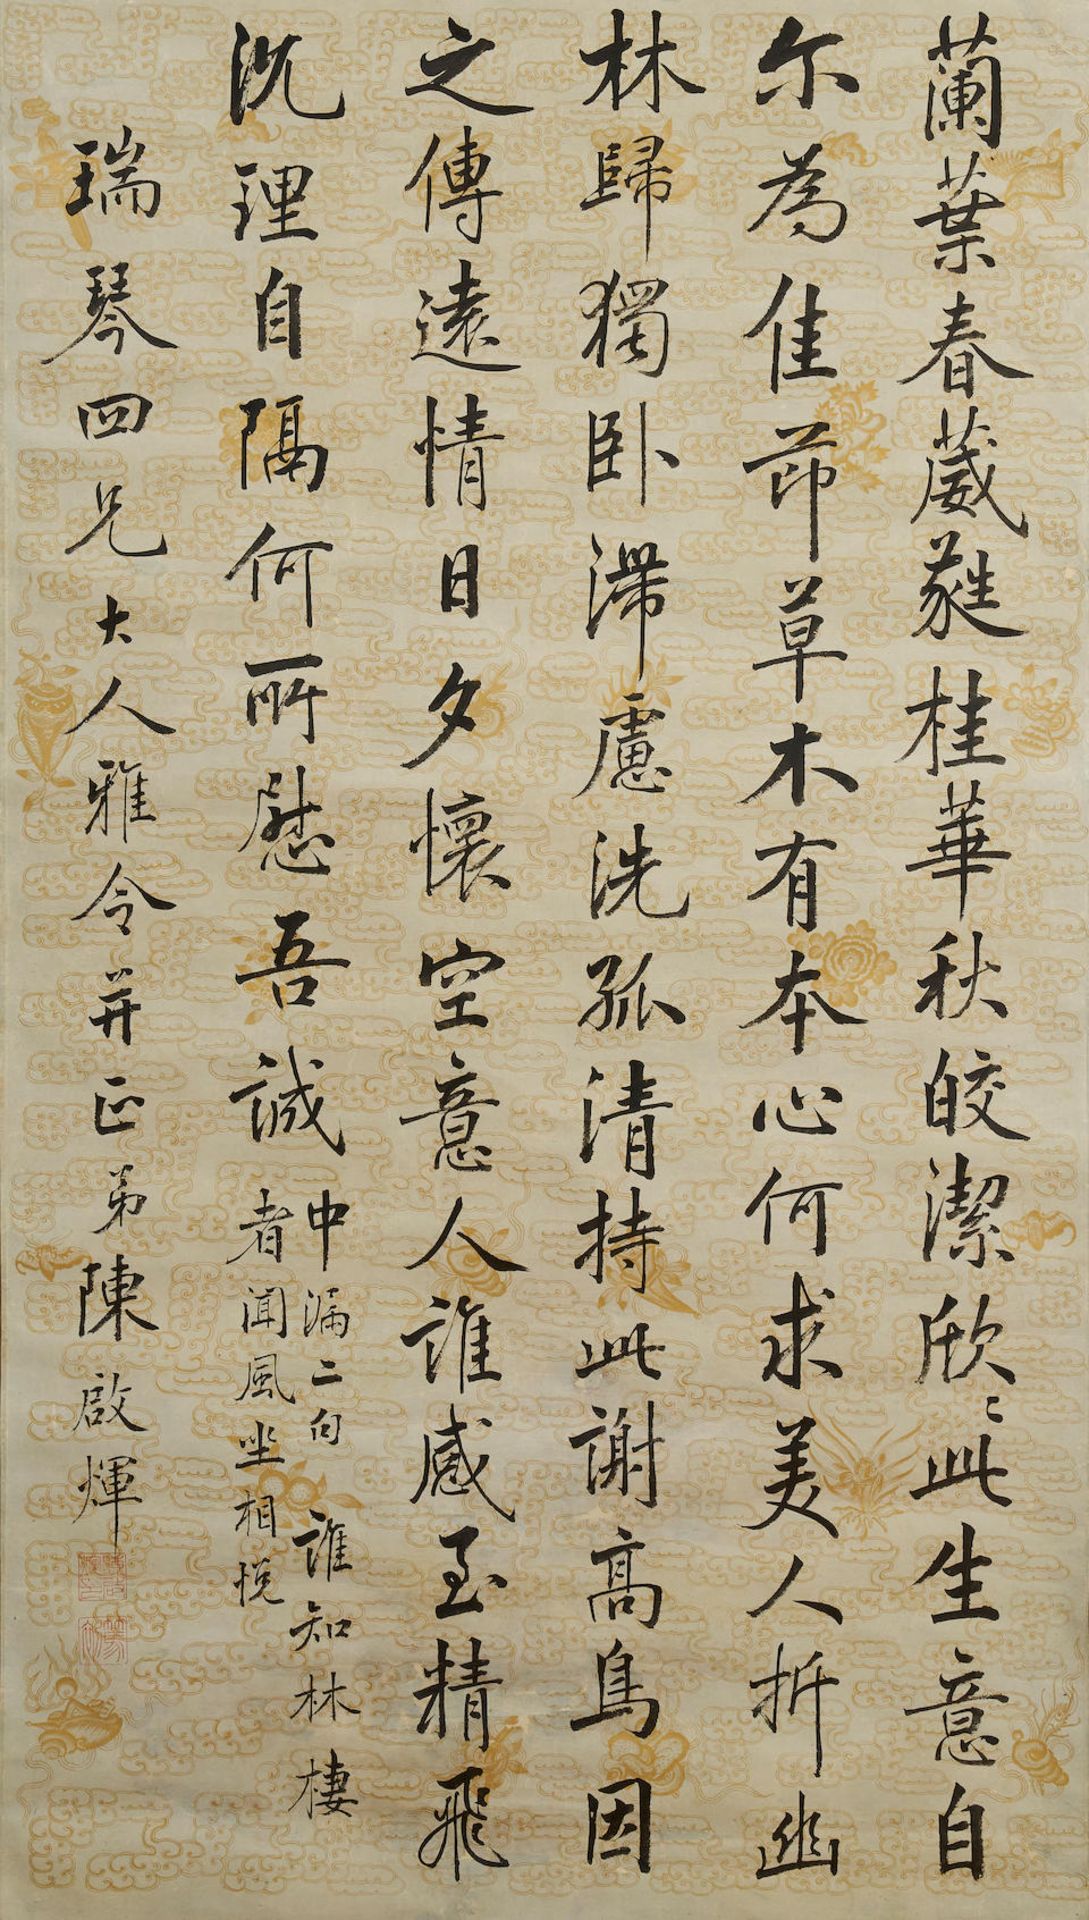 蘭葉春葳蕤桂華秋皎潔欣〻此生意自
尔為佳茆草木有本心何求美人折幽
林歸獨卧滞慮洗孤清持此謝高鳥因
之傳遠情日夕懷空意人誰感至精飛
沉理自隔何所慰吾誠
中漏二句 誰知林棲
者聞風坐相悅
瑞琴四兄大人雅令并正弟陳啟煇